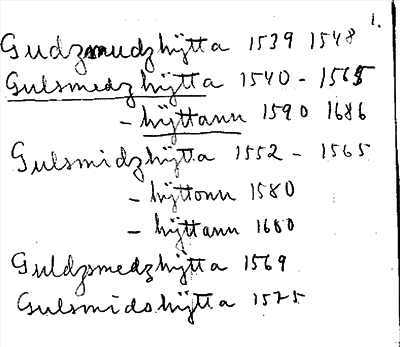 1.
Gudzmudzhÿtta 1539 1548
Gulsmedzhÿtta 1540 - 1565
- hÿttann 1590 1686
Gulsmidzhÿtta 1552 - 1565
- hÿttonn 1580
- hÿttann 1680
Guldzmedzhÿtta 1569
Gulsmidshÿtta 1575